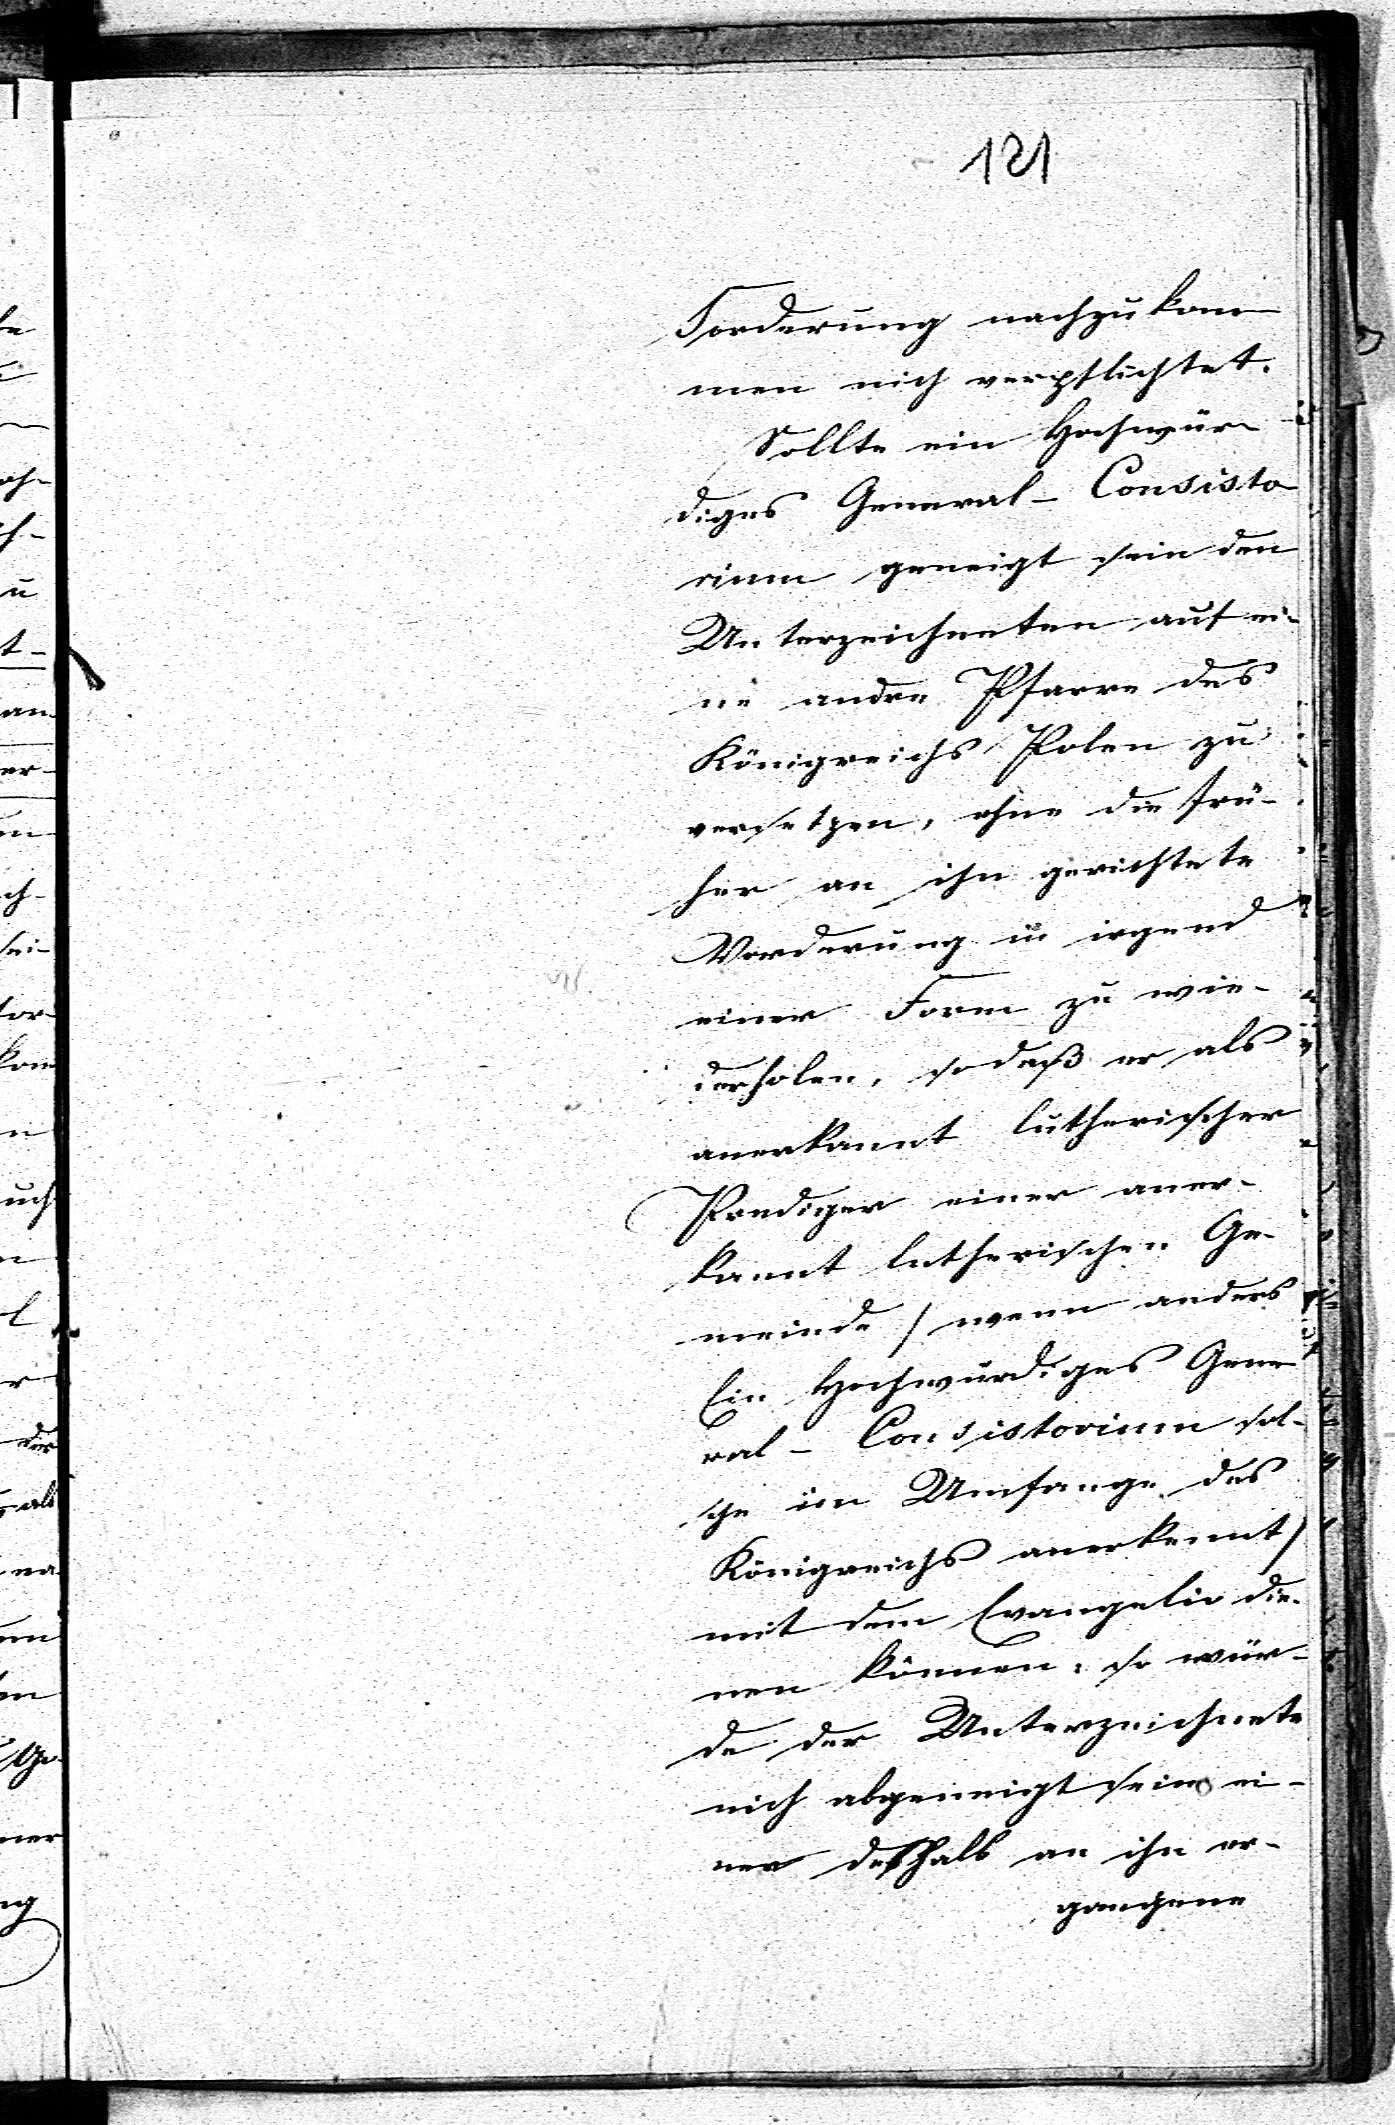 121
Forderung nachzukom
men nich verpflichtet.
Sollte ein Hochwür-
diges General-Consisto
rium geneigt sein den
Unterzeichneten auf ei-
ne andre Pfarre des
Königreichs Polen zu
versetzen, ohne die frü-
her an ihn gerichtete
Vorderung in irgend
einer Form zu wie-
derholen, so daß er als
anerkannt lutherischer
Prediger einer aner-
kannt lutherischen Ge-
meinde / wenn anders
Ein Hochwürdiges Gene
ral-Consistorium sol-
che im Umfange des
Königreichs anerkennt /
mit dem Evangelio die-
nen können: so wür-
de der Unterzeichnete
nich abgeneigt sein ei-
ner deshalb an ihn er-
gangene